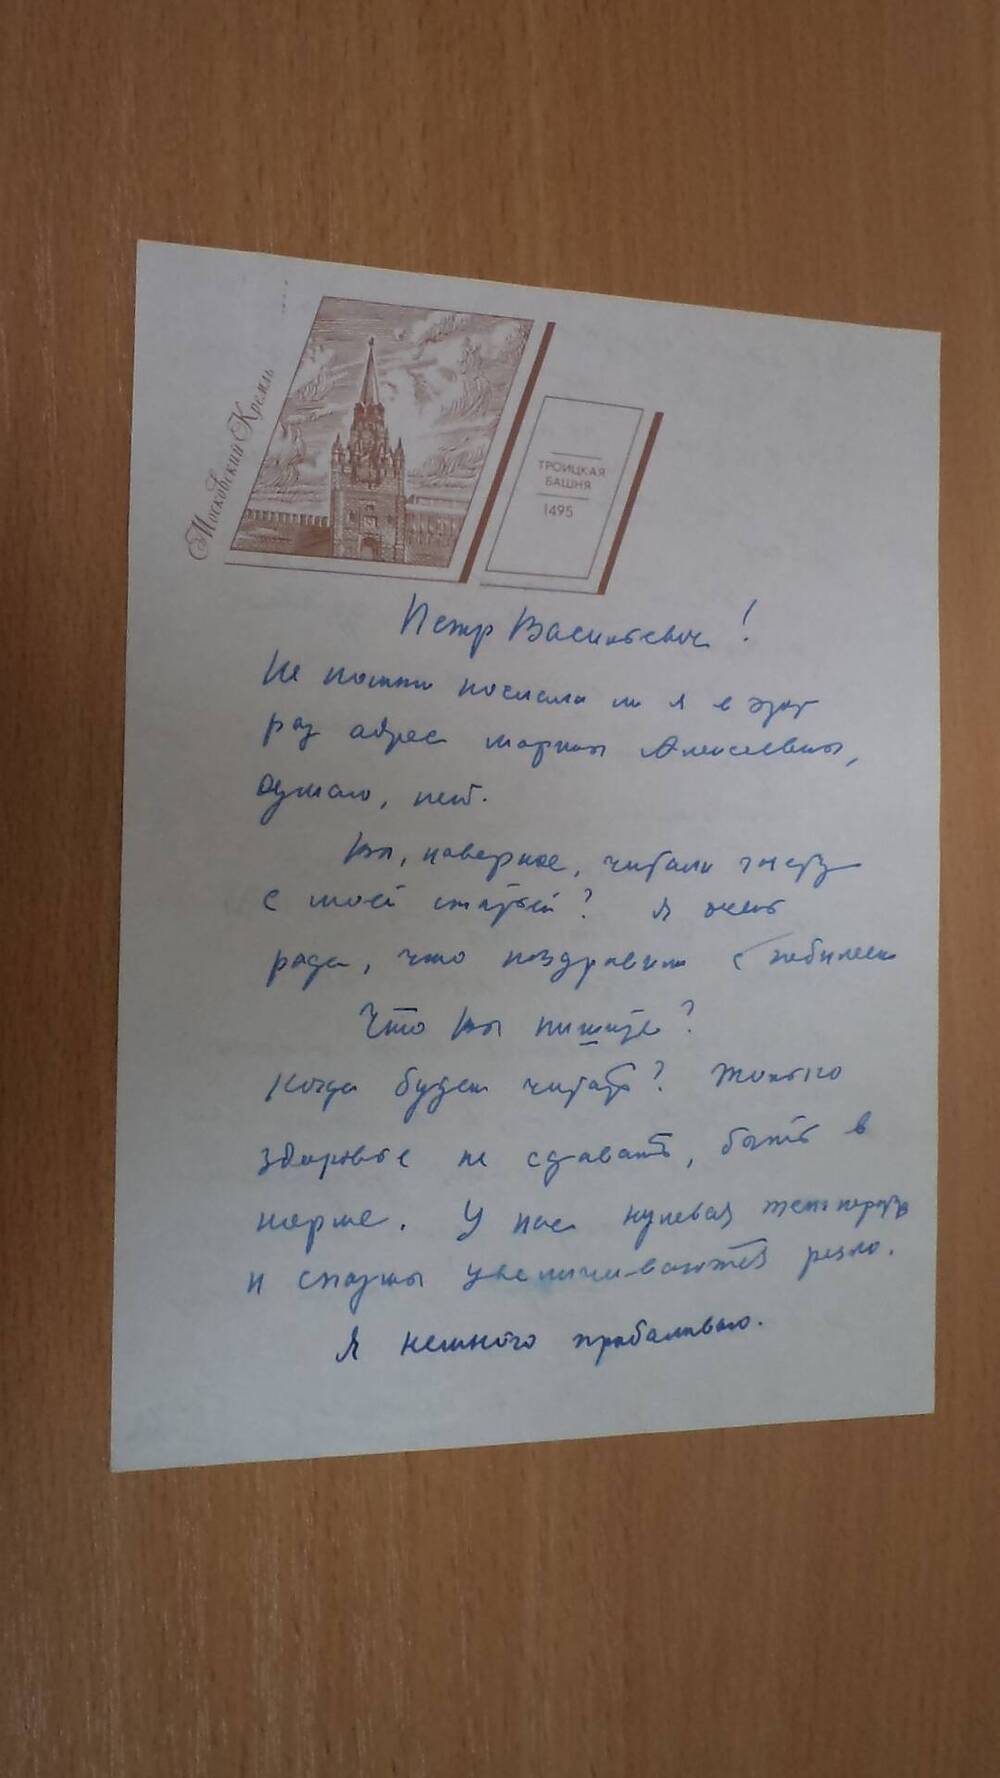 Московский Кремль
ТРОИЦКАЯ
БАШНЯ
1495
Петр Васильевич!
Не помню послала ли я в этот
раз адрес Марины Алексеевны,
думаю, нет.
Вы, наверное, читали газету
с моей статьей? Я очень
рада, что поздравили с юбилеем
Что Вы пишите?
Когда будем читать? Только
здоровье не сдавать, быть в
норме. У нас нулевая температура
и спазмы увеличиваются резко.
Я немного прибаливаю.